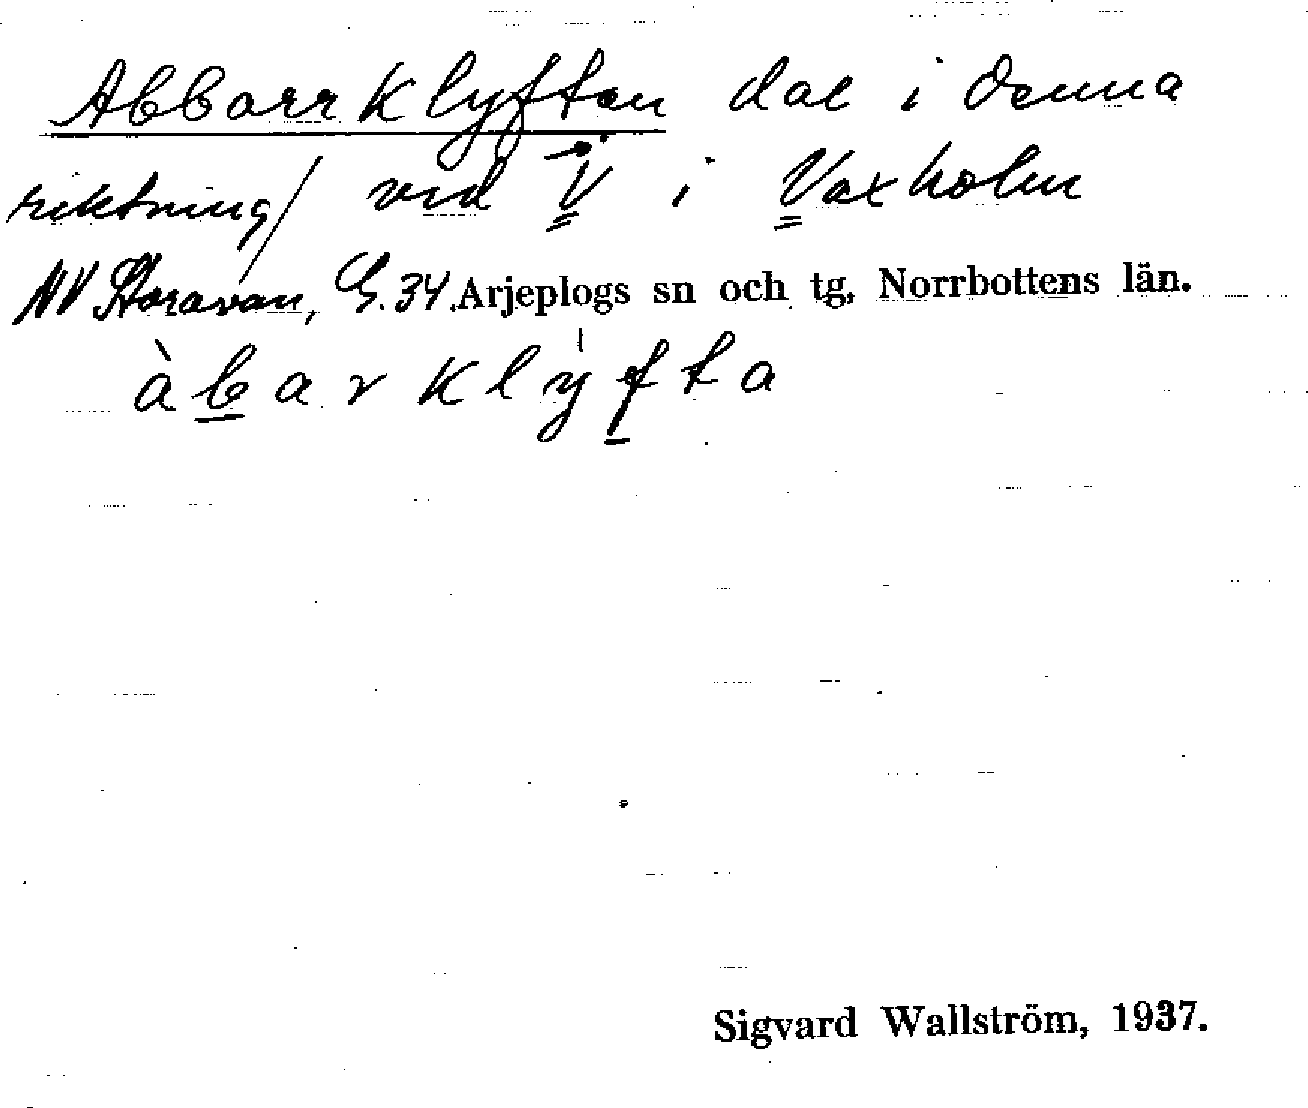 Abborrklyftan dal i denna
riktning/ vid V i Vaxholm
NV Storavan, G.34. Arjeplogs sn och tg. Norrbottens län.
àbarklyfta
Sigvard Wallström, 1937.